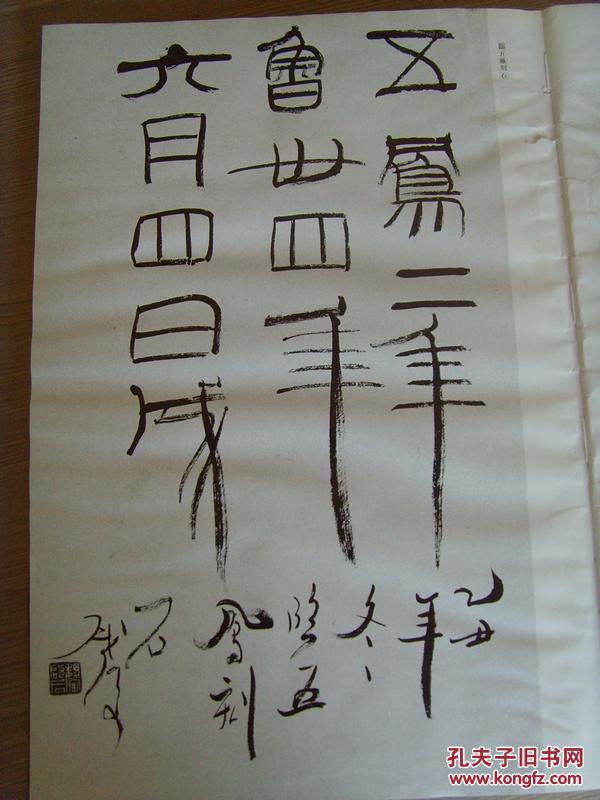 臨五鳳刻石
五鳳二年
魯卅四年
六月四日成
乙丑
年
冬
臨五
鳳刻
石
孔夫子旧书网
www.kongfz.com